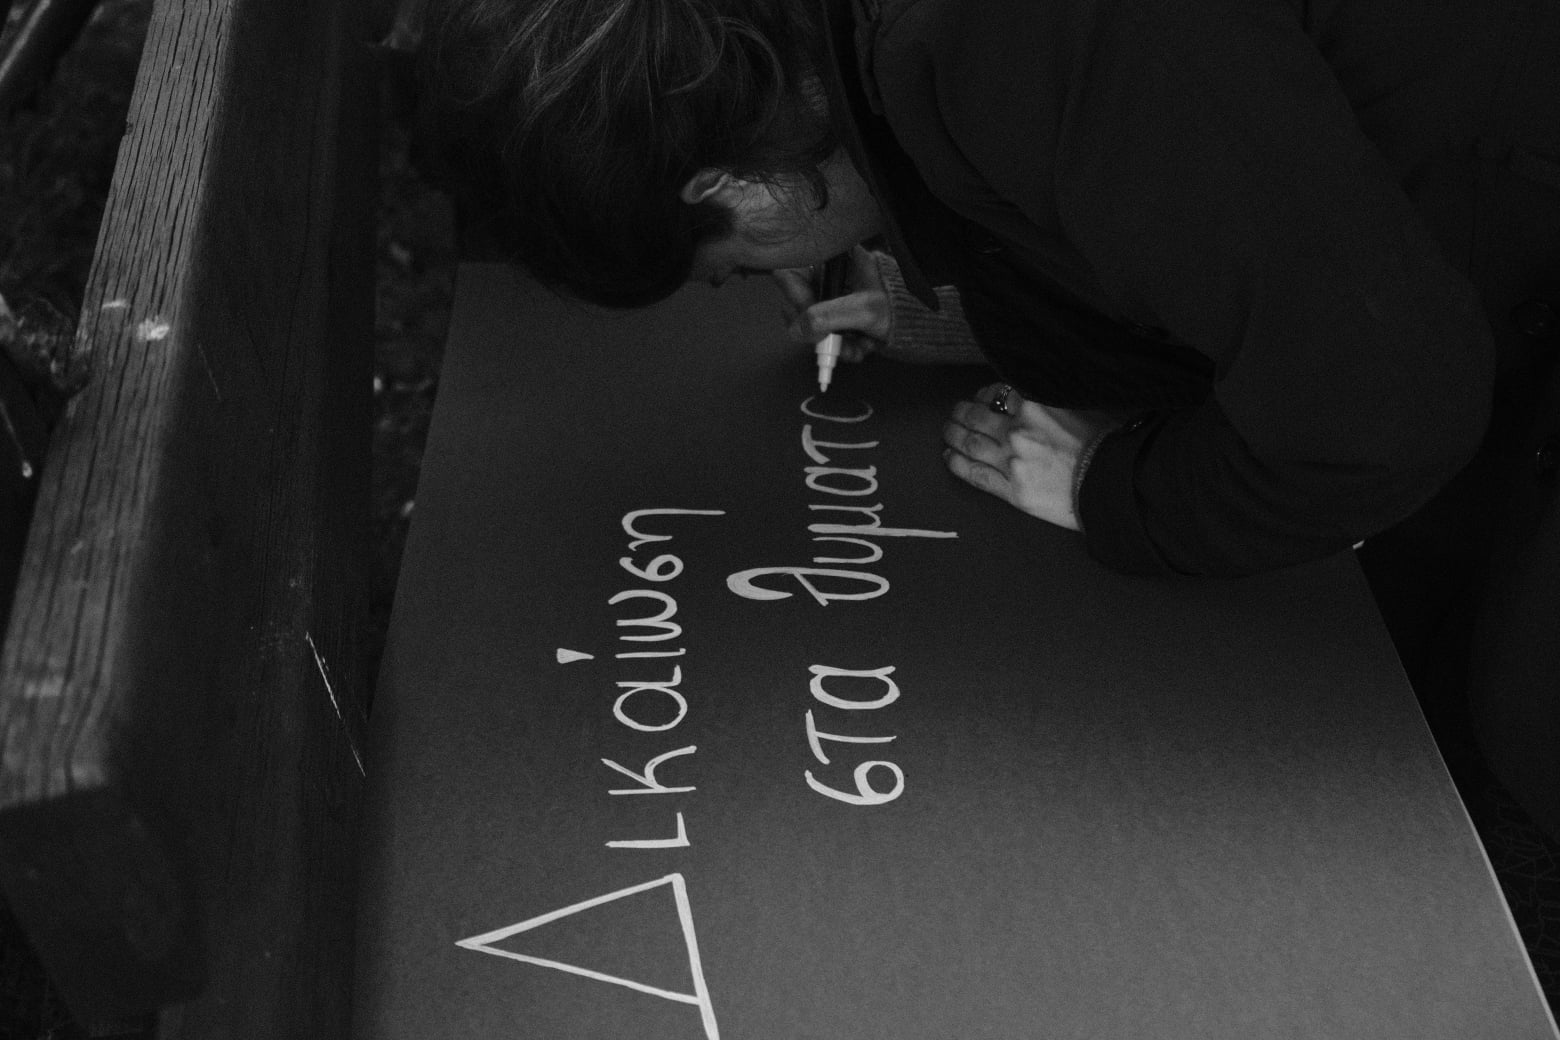 Δικαίωση
στα θύματ